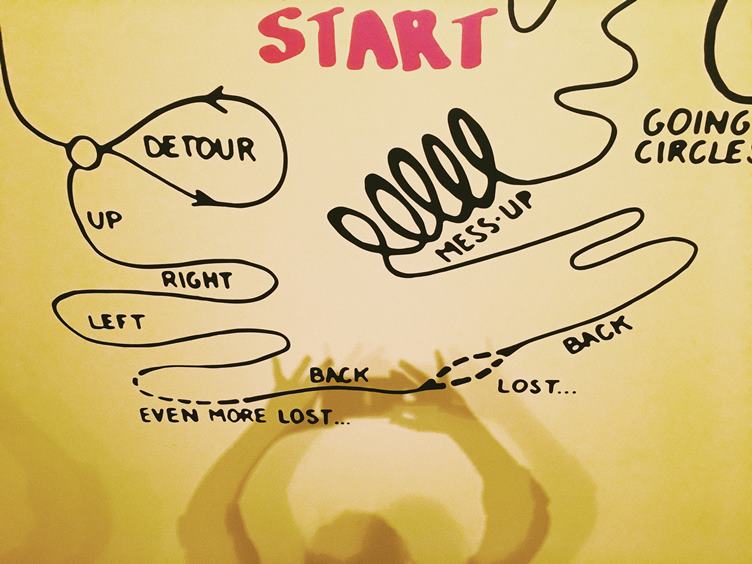 START
DETOUR
GOING
CIRCLES
UP
MESS-UP
RIGHT
LEFT
BACK
BACK
LOST...
EVEN MORE LOST...